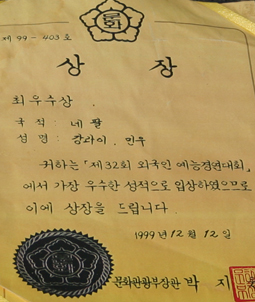 문화
제 99 - 403 호
상 장
최우수상
국 적 : 네 팔
성 명 :
귀하는 「제32회 외국인 예능경연대회」
에서 가장 우수한 성적으로 입상하였으므로
이에 상장을 드립니다
1999년 12월 12일
문화관광부장관 박 지